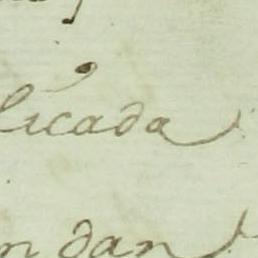 licada
n dan